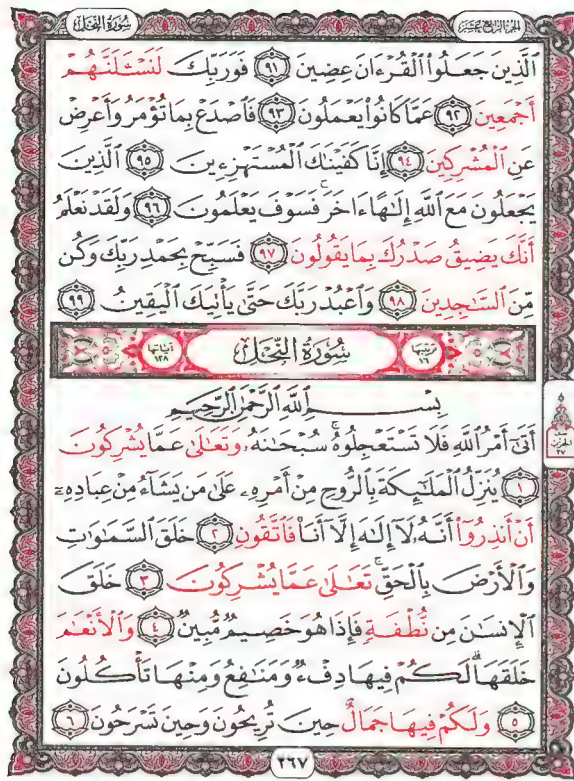 الجزء الرابع عشر
سُورَةُ النَّحْلِ
الَّذِينَ جَعَلُوا الْقُرْءَانَ عِضِينَ ٩١ فَوَرَبِّكَ لَنَسْـَٔلَنَّهُمْ
أَجْمَعِينَ ٩٢ عَمَّا كَانُوا۟ يَعْمَلُونَ ٩٣ فَاصْدَعْ بِمَا تُؤْمَرُ وَأَعْرِضْ
عَنِ الْمُشْرِكِينَ ٩٤ إِنَّا كَفَيْنَاكَ الْمُسْتَهْزِءِينَ ٩٥ الَّذِينَ
يَجْعَلُونَ مَعَ اللَّهِ إِلَٰهًا ءَاخَرَ ۚ فَسَوْفَ يَعْلَمُونَ ٩٦ وَلَقَدْ نَعْلَمُ
أَنَّكَ يَضِيقُ صَدْرُكَ بِمَا يَقُولُونَ ٩٧ فَسَبِّحْ بِحَمْدِ رَبِّكَ وَكُن
مِّنَ السَّٰجِدِينَ ٩٨ وَاعْبُدْ رَبَّكَ حَتَّىٰ يَأْتِيَكَ الْيَقِينُ ٩٩
ترتيبها ١٦
سُورَةُ النَّحْلِ
آياتها ١٢٨
بِسْمِ اللَّهِ الرَّحْمَٰنِ الرَّحِيمِ
أَتَىٰٓ أَمْرُ اللَّهِ فَلَا تَسْتَعْجِلُوهُ ۚ سُبْحَٰنَهُۥ وَتَعَٰلَىٰ عَمَّا يُشْرِكُونَ
١ يُنَزِّلُ الْمَلَٰٓئِكَةَ بِالرُّوحِ مِنْ أَمْرِهِۦ عَلَىٰ مَن يَشَآءُ مِنْ عِبَادِهِۦٓ
أَنْ أَنذِرُوٓا۟ أَنَّهُۥ لَآ إِلَٰهَ إِلَّآ أَنَا۠ فَاتَّقُونِ ٢ خَلَقَ السَّمَٰوَٰتِ
وَالْأَرْضَ بِالْحَقِّ ۚ تَعَٰلَىٰ عَمَّا يُشْرِكُونَ ٣ خَلَقَ
الْإِنسَٰنَ مِن نُّطْفَةٍ فَإِذَا هُوَ خَصِيمٌ مُّبِينٌ ٤ وَالْأَنْعَٰمَ
خَلَقَهَا ۗ لَكُمْ فِيهَا دِفْءٌ وَمَنَٰفِعُ وَمِنْهَا تَأْكُلُونَ
٥ وَلَكُمْ فِيهَا جَمَالٌ حِينَ تُرِيحُونَ وَحِينَ تَسْرَحُونَ ٦
الحزب
٢٧
٢٦٧